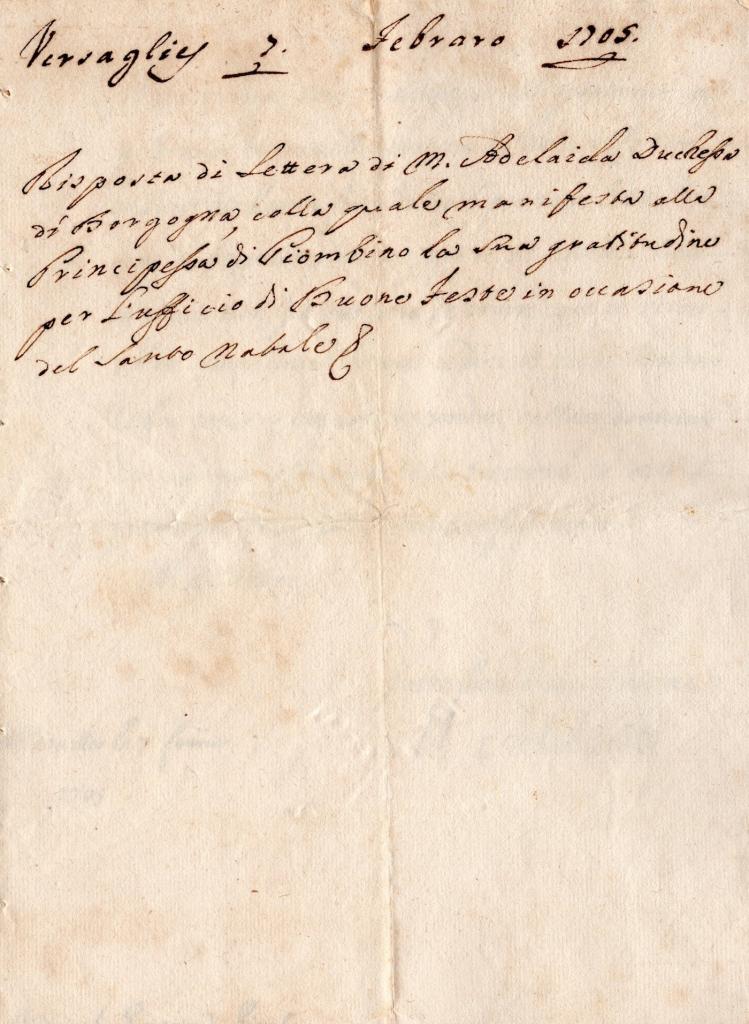 Versaglies 7. Febraro 1705.
Risposta di Lettera di M. Adelaida Duchessa
di Borgogna, colla quale manifesta alla
Principessa di Piombino la sua gratitudine
per l'ufficio di Buone Feste in occasione
del Santo Natale